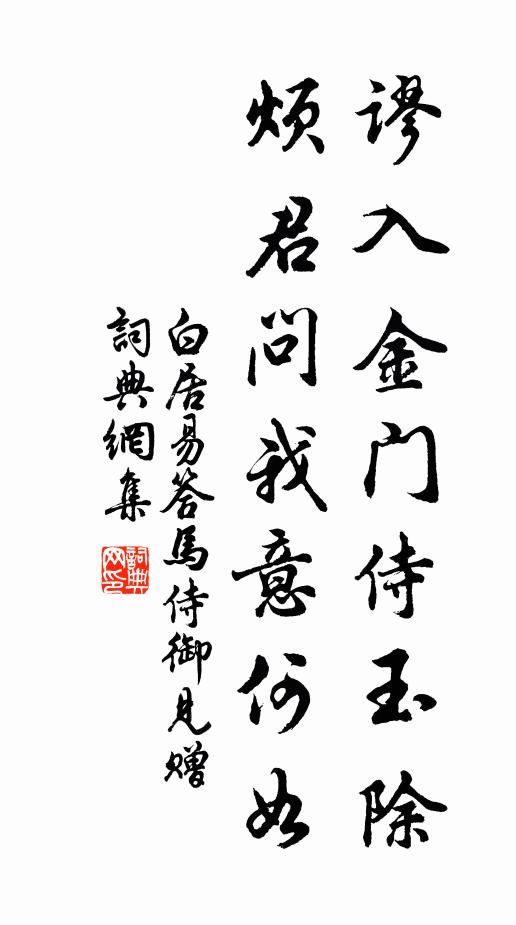 謬入金门侍玉除
煩君問我意何如
白居易答馬侍御見赠
詞典網集
詞典网印